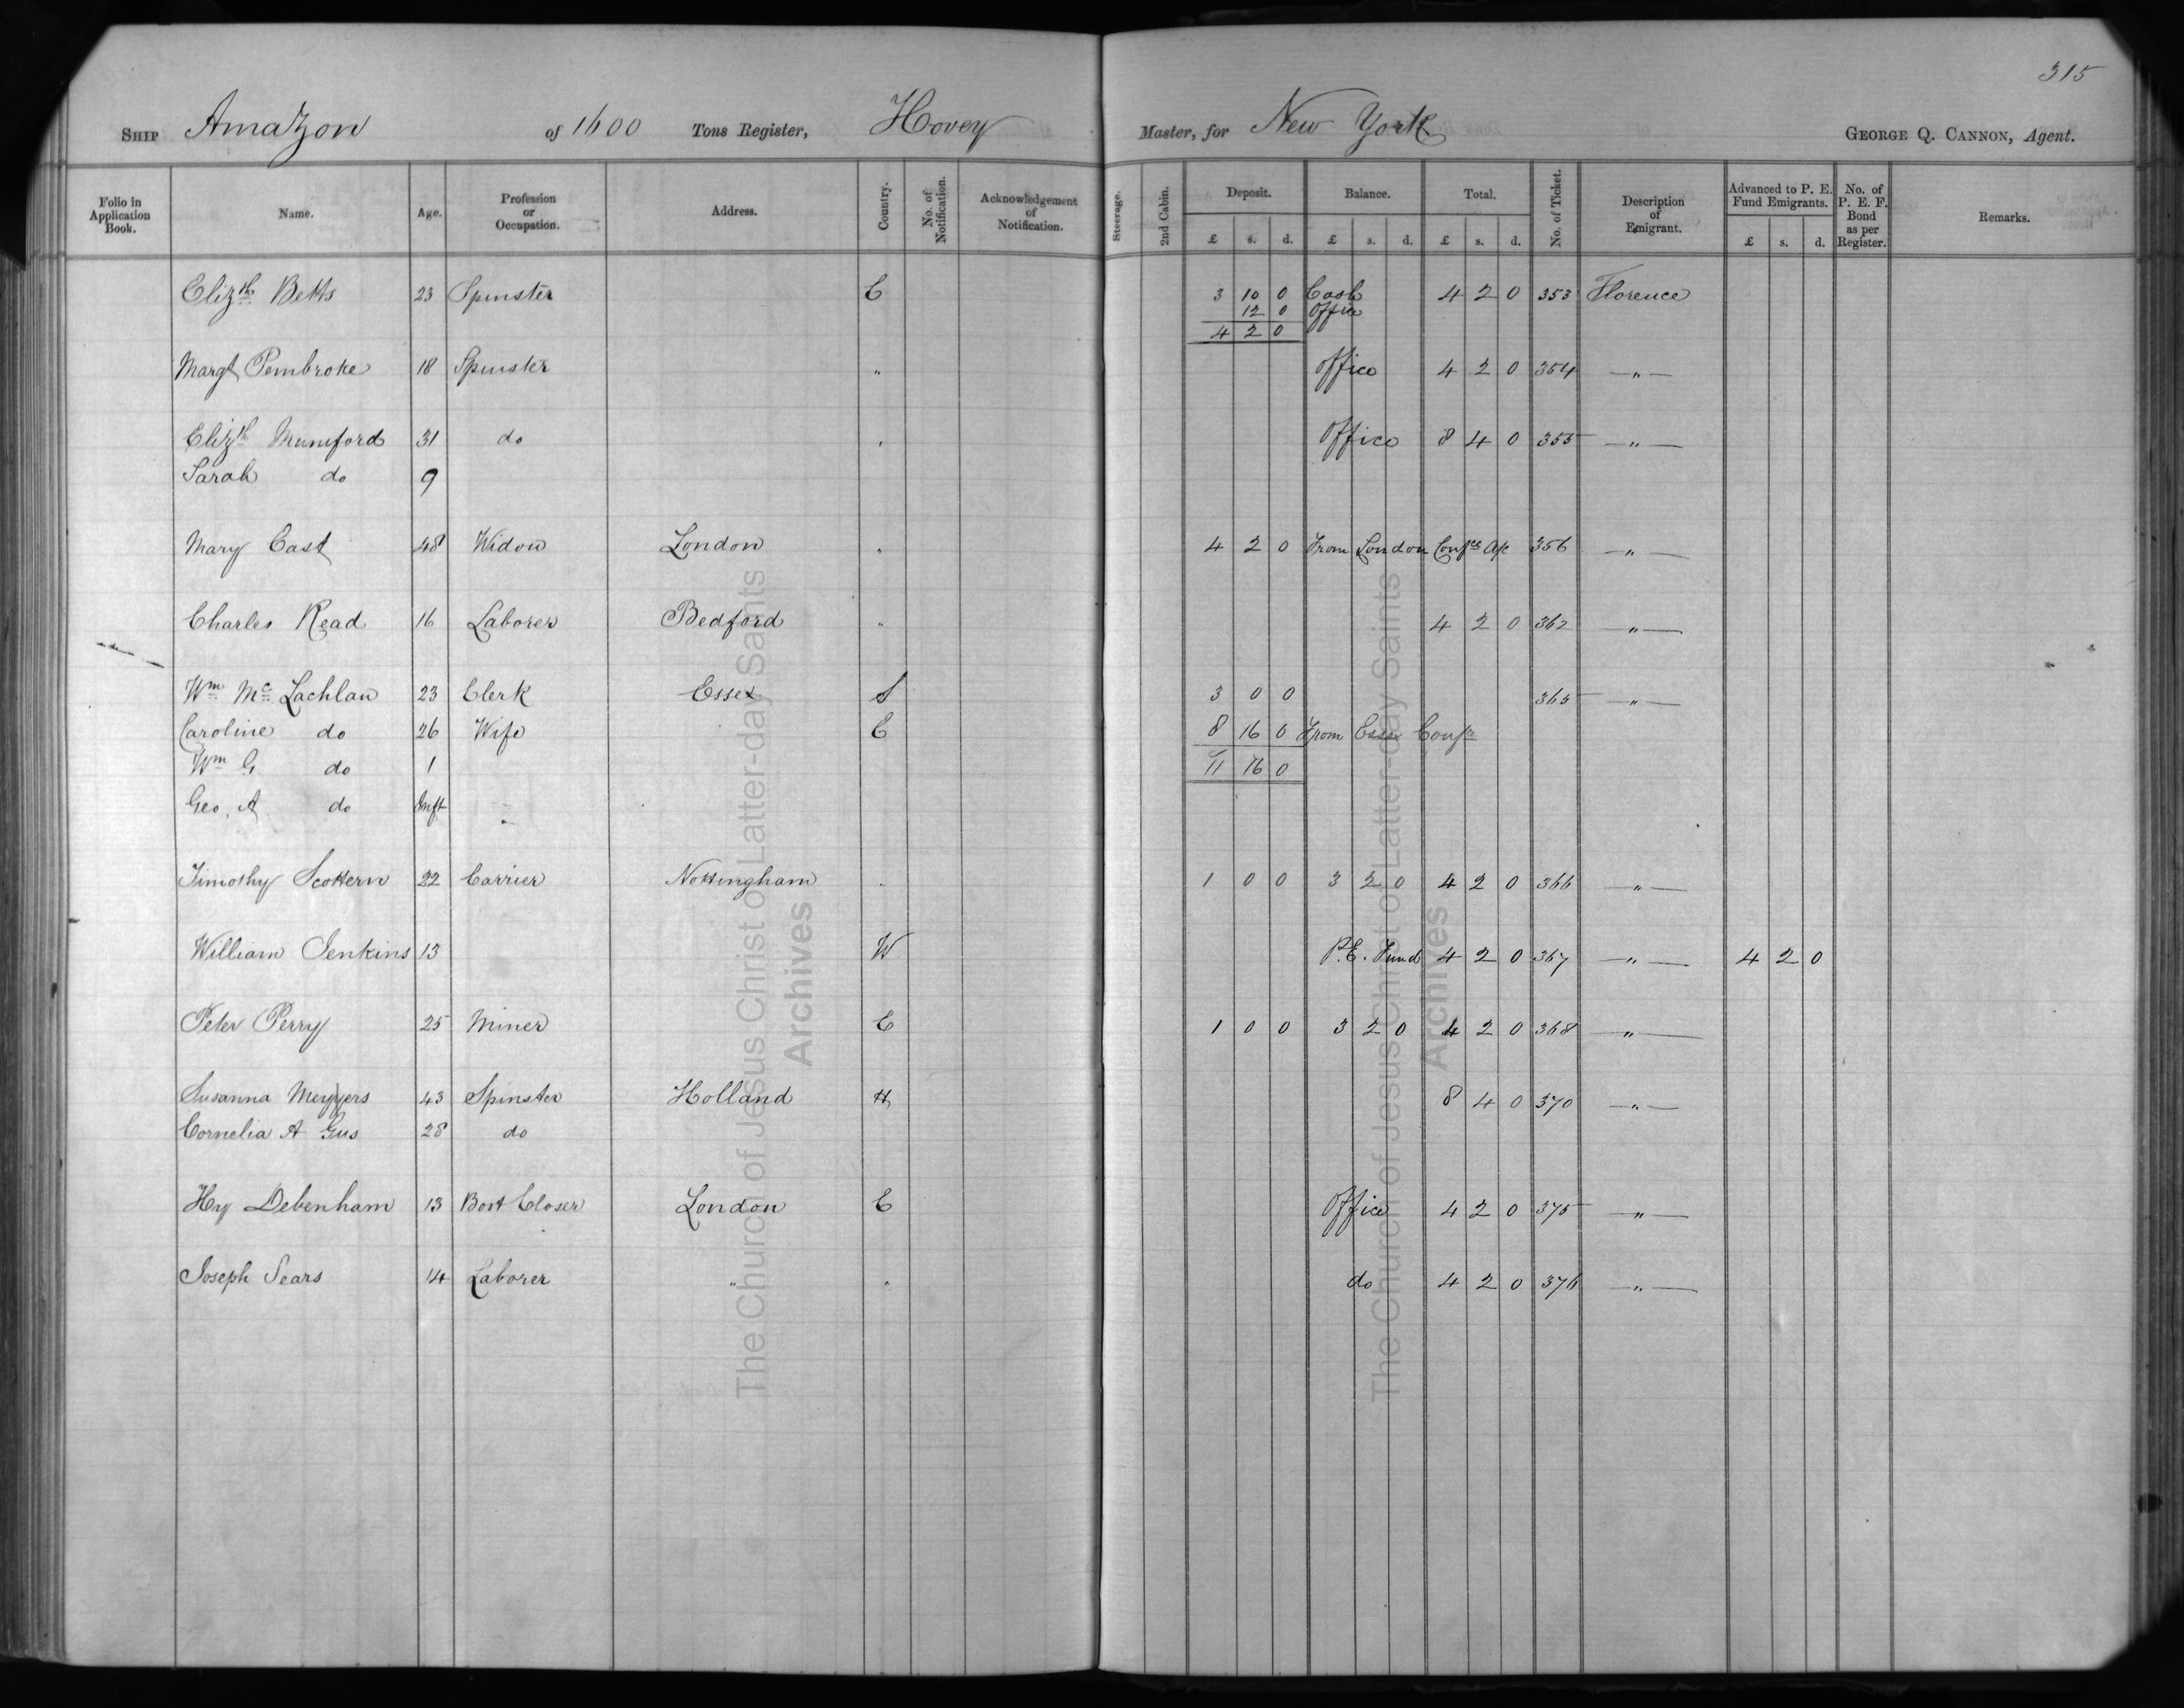 315
SHIP Amazon of 1600 Tons Register, Hovey Master, for New York GEORGE Q. CANNON, Agent.
Folio in Application Book. Name. Age. Profession or Occupation. Address. Country. No. of Notification. Acknowledgement of Notification. Steerage. 2nd Cabin. Deposit. £ s. d. Balance. £ s. d. Total. £ s. d. No. of Ticket. Description of Emigrant. Advanced to P. E. Fund Emigrants. £ s. d. No. of P. E. F. Bond as per Register. Remarks.
Elizth Betts 23 Spinster E 3 10 0 Cash 4 2 0 353 Florence
12 0 Office
4 2 0
Margt Pembroke 18 Spinster " Office 4 2 0 354 — " —
Elizth Mumford 31 do " Office 8 4 0 355 — " —
Sarah do 9
Mary East 48 Widow London " 4 2 0 From London Confce A/c 356 — " —
Charles Read 16 Laborer Bedford " 4 2 0 362 — " —
Wm Mc Lachlan 23 Clerk Essex S 3 0 0 365 — " —
Caroline do 26 Wife E 8 16 0 From Essex Confce
Wm G. do 1 11 16 0
Geo. A do Inft
Timothy Scottern 22 Carrier Nottingham " 1 0 0 3 2 0 4 2 0 366 — " —
William Jenkins 13 W P.E. Fund 4 2 0 367 — " — 4 2 0
Peter Perry 25 Miner E 1 0 0 3 2 0 4 2 0 368 — " —
Susanna Meyyers 43 Spinster Holland H 8 4 0 370 — " —
Cornelia A Gus 28 do
Hy Debenham 13 Boot Closer London E Office 4 2 0 375 — " —
Joseph Sears 14 Laborer " " do 4 2 0 376 — " —
The Church of Jesus Christ of Latter-day Saints
Archives
The Church of Jesus Christ of Latter-day Saints
Archives